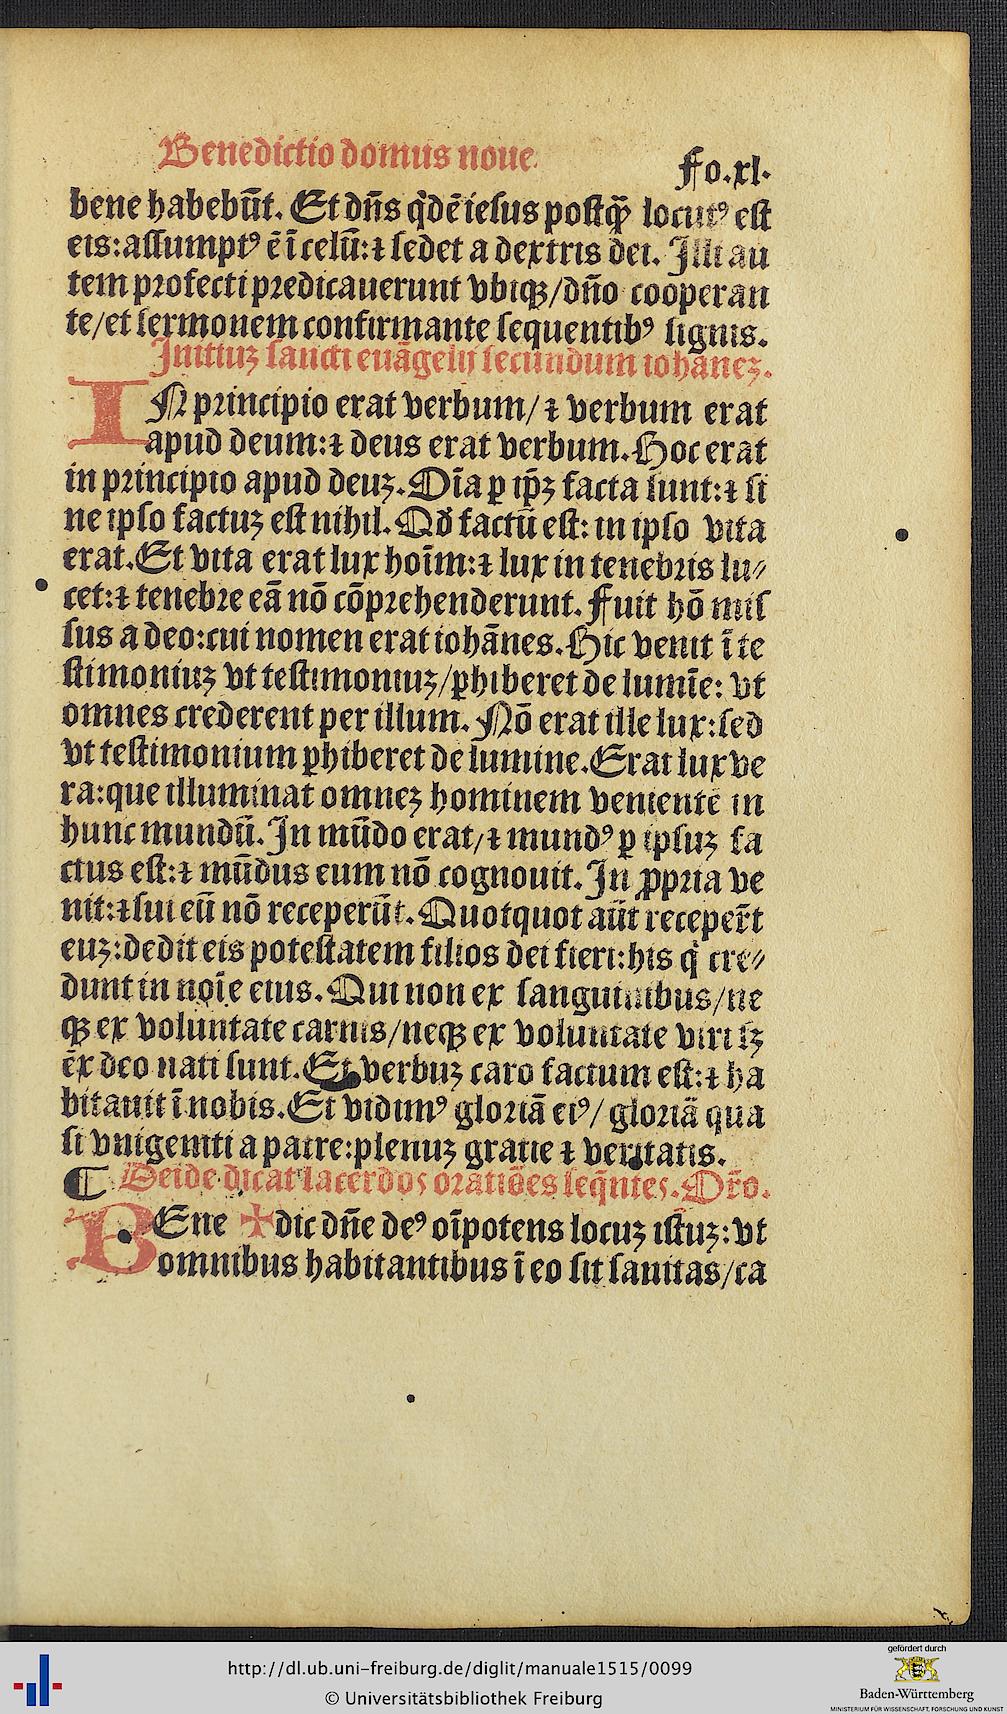 Benedictio domus noue.
Fo.xl.
bene habebūt. Et dn̄s q̇dē iesus postq̄ꝫ locutꝰ est
eis:assumptꝰ ē ī celū:⁊ sedet a dextris dei. Illi au
tem profecti predicauerunt vbiqꝫ/dn̄o cooperan
te/et sermonem confirmante sequentibꝰ signis.
Initiuꝫ sancti euāgelij secundum iohāneꝫ.
IN principio erat verbum/⁊ verbum erat
apud deum:⁊ deus erat verbum. Hoc erat
in principio apud deuꝫ. Oīa ꝑ ip̄ꝫ facta sunt:⁊ si
ne ipso factuꝫ est nihil. Qď factū est: in ipso vita
erat. Et vita erat lux hoīm:⁊ lux in tenebris lu⸗
cet:⁊ tenebre eā nō cōprehenderunt. Fuit hō mis
sus a deo:cui nomen erat iohānes. Hic venit ī te
stimoniuꝫ vt testimoniuꝫ/ꝑhiberet de lumīe: vt
omnes crederent per illum. Nō erat ille lux:sed
vt testimonium ꝑhiberet de lumine. Erat lux ve
ra:que illuminat omneꝫ hominem venientē in
hunc mundū. In mūdo erat/⁊ mundꝰ ꝑ ipsuꝫ fa
ctus est:⁊ mūdus eum nō cognouit. In ꝓpria ve
nit:⁊ sui eū nō receperūt. Quotquot aūt recepert̄
euꝫ:dedit eis potestatem filios dei fieri:his q̇ cre⸗
dunt in noīe eius. Qui non ex sanguinibus/ne
qꝫ ex voluntate carnis/neqꝫ ex voluntate viri sꝫ
ex deo nati sunt. Et verbuꝫ caro factum est:⁊ ha
bitauit ī nobis. Et vidimꝰ gloriā eiꝰ/ gloriā qua
si vnigeniti a patre:plenuꝫ gratie ⁊ veritatis.
¶ Deīde dicat sacerdos oratiōes seq̄ntes. Or̄o.
BEne ✠ dic dn̄e deꝰ oīpotens locuꝫ istuꝫ:vt
omnibus habitantibus ī eo sit sanitas/ca
http://dl.ub.uni-freiburg.de/diglit/manuale1515/0099
© Universitätsbibliothek Freiburg
gefördert durch
Baden-Württemberg
MINISTERIUM FÜR WISSENSCHAFT, FORSCHUNG UND KUNST